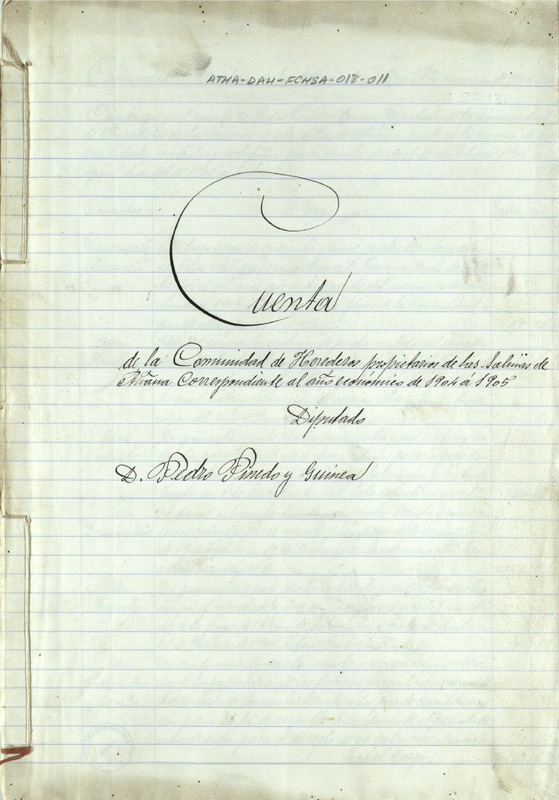 ATHA-DAH-FCHSA-018-011
Cuenta
de la Comunidad de Herederos propietarios de las Salinas de
Añana Correspondiente al año económico de 1904 á 1905
Diputado
D. Pedro Pinedo y Guinea